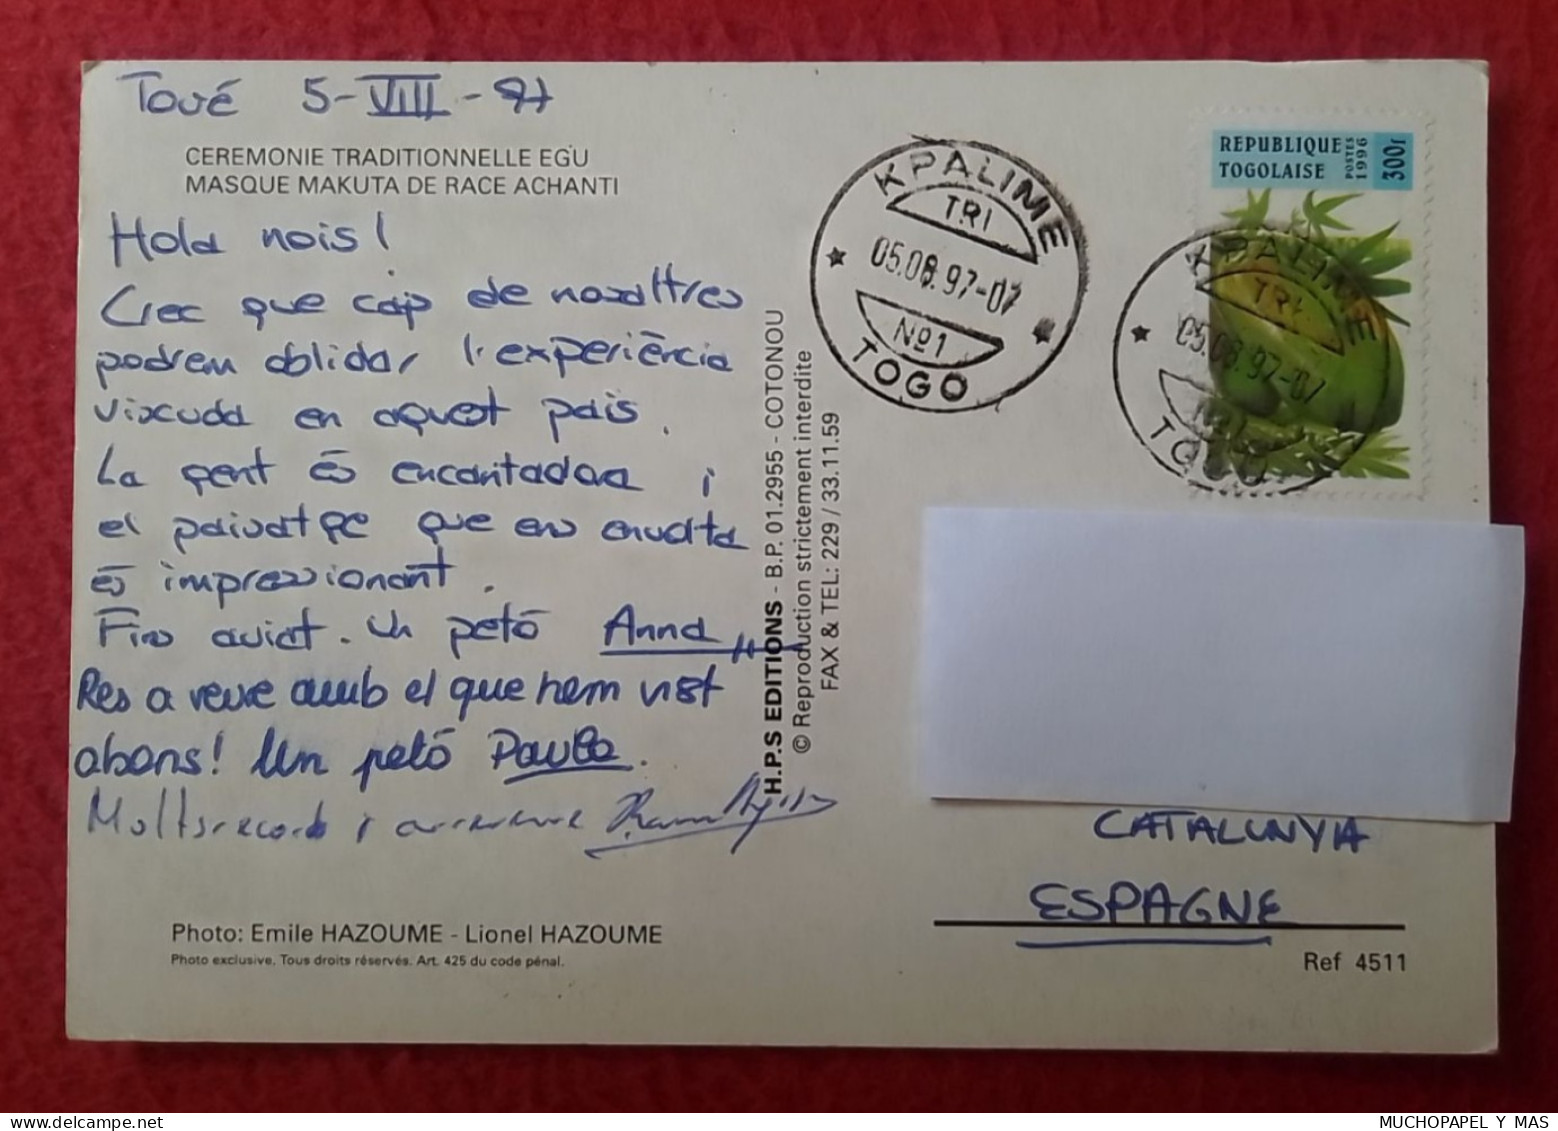 Tové 5-VIII-97
CEREMONIE TRADITIONNELLE EGU
MASQUE MAKUTA DE RACE ACHANTI
Hola nois!
Crec que cap de nosaltres
podrem oblidar l'experiència
viscuda en aquest pais.
La gent és encantadora i
el paisatge que ens envolta
és impressionant.
Fins aviat. Un petó Anna
Res a veure amb el que hem vist
abans! Un petó Paula.
Molts records i
Photo: Emile HAZOUME - Lionel HAZOUME
Photo exclusive. Tous droits réservés. Art. 425 du code pénal.
H.P.S EDITIONS - B.P. 01.2955 - COTONOU
© Reproduction strictement interdite
FAX & TEL: 229 / 33.11.59
KPALIME
TRI
05.08.97-07
Nº1
TOGO
REPUBLIQUE
TOGOLAISE
POSTES
1996
300F
KPALIME
TRI
05.08.97-07
Nº1
TOGO
CATALUNYA
ESPAGNE
Ref 4511
MUCHOPAPEL Y MAS